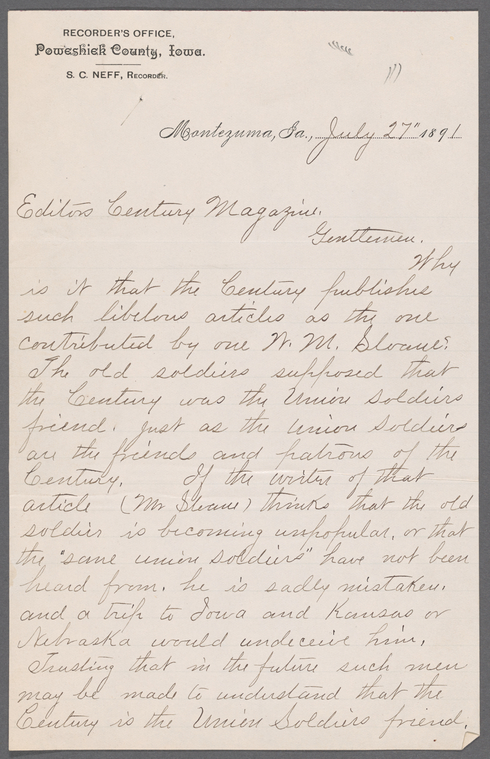 RECORDER'S OFFICE,
Poweshiek County, Iowa.
S. C. NEFF, RECORDER.
Montezuma, Ia., July 27" 1891
Editors Century Magazine.
Gentlemen.
Why
is it that the Century publishes
such libelous articles as the one
contributed by one W. M. Sloane?
The old soldiers supposed that
the Century was the Union soldiers
friend. just as the Union Soldiers
are the friends and patrons of the
Century. If the writer of that
article (Mr Sloane) thinks that the old
soldier is becoming unpopular, or that
the "sane union soldiers" have not been
heard from. he is sadly mistaken.
and a trip to Iowa and Kansas or
Nebraska would undeceive him.
Trusting that in the future such men
may be made to understand that the
Century is the Union Soldiers friend.